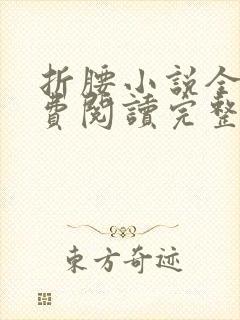 折腰小說全
費閱讀完整
东方奇迹